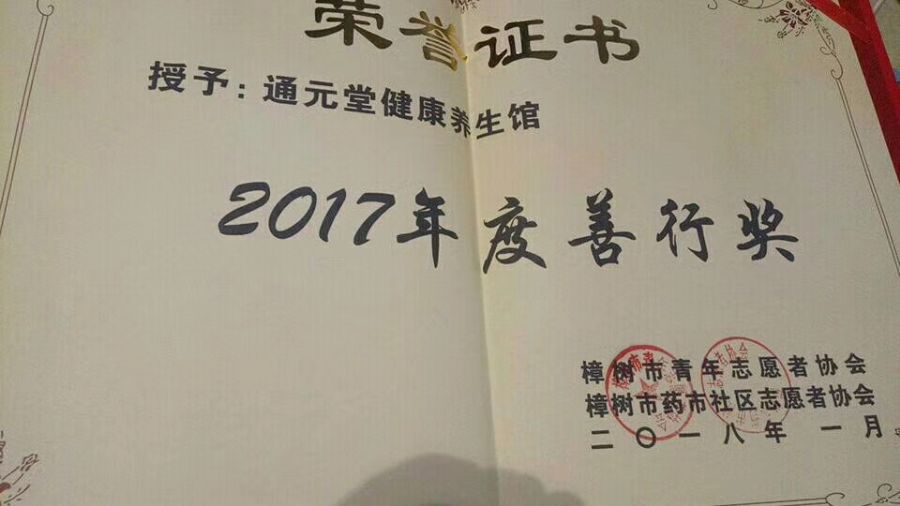 荣誉证书
授予：通元堂健康养生馆
2017年度善行奖
樟树市青年志愿者协会
樟树市药市社区志愿者协会
二〇一八年一月